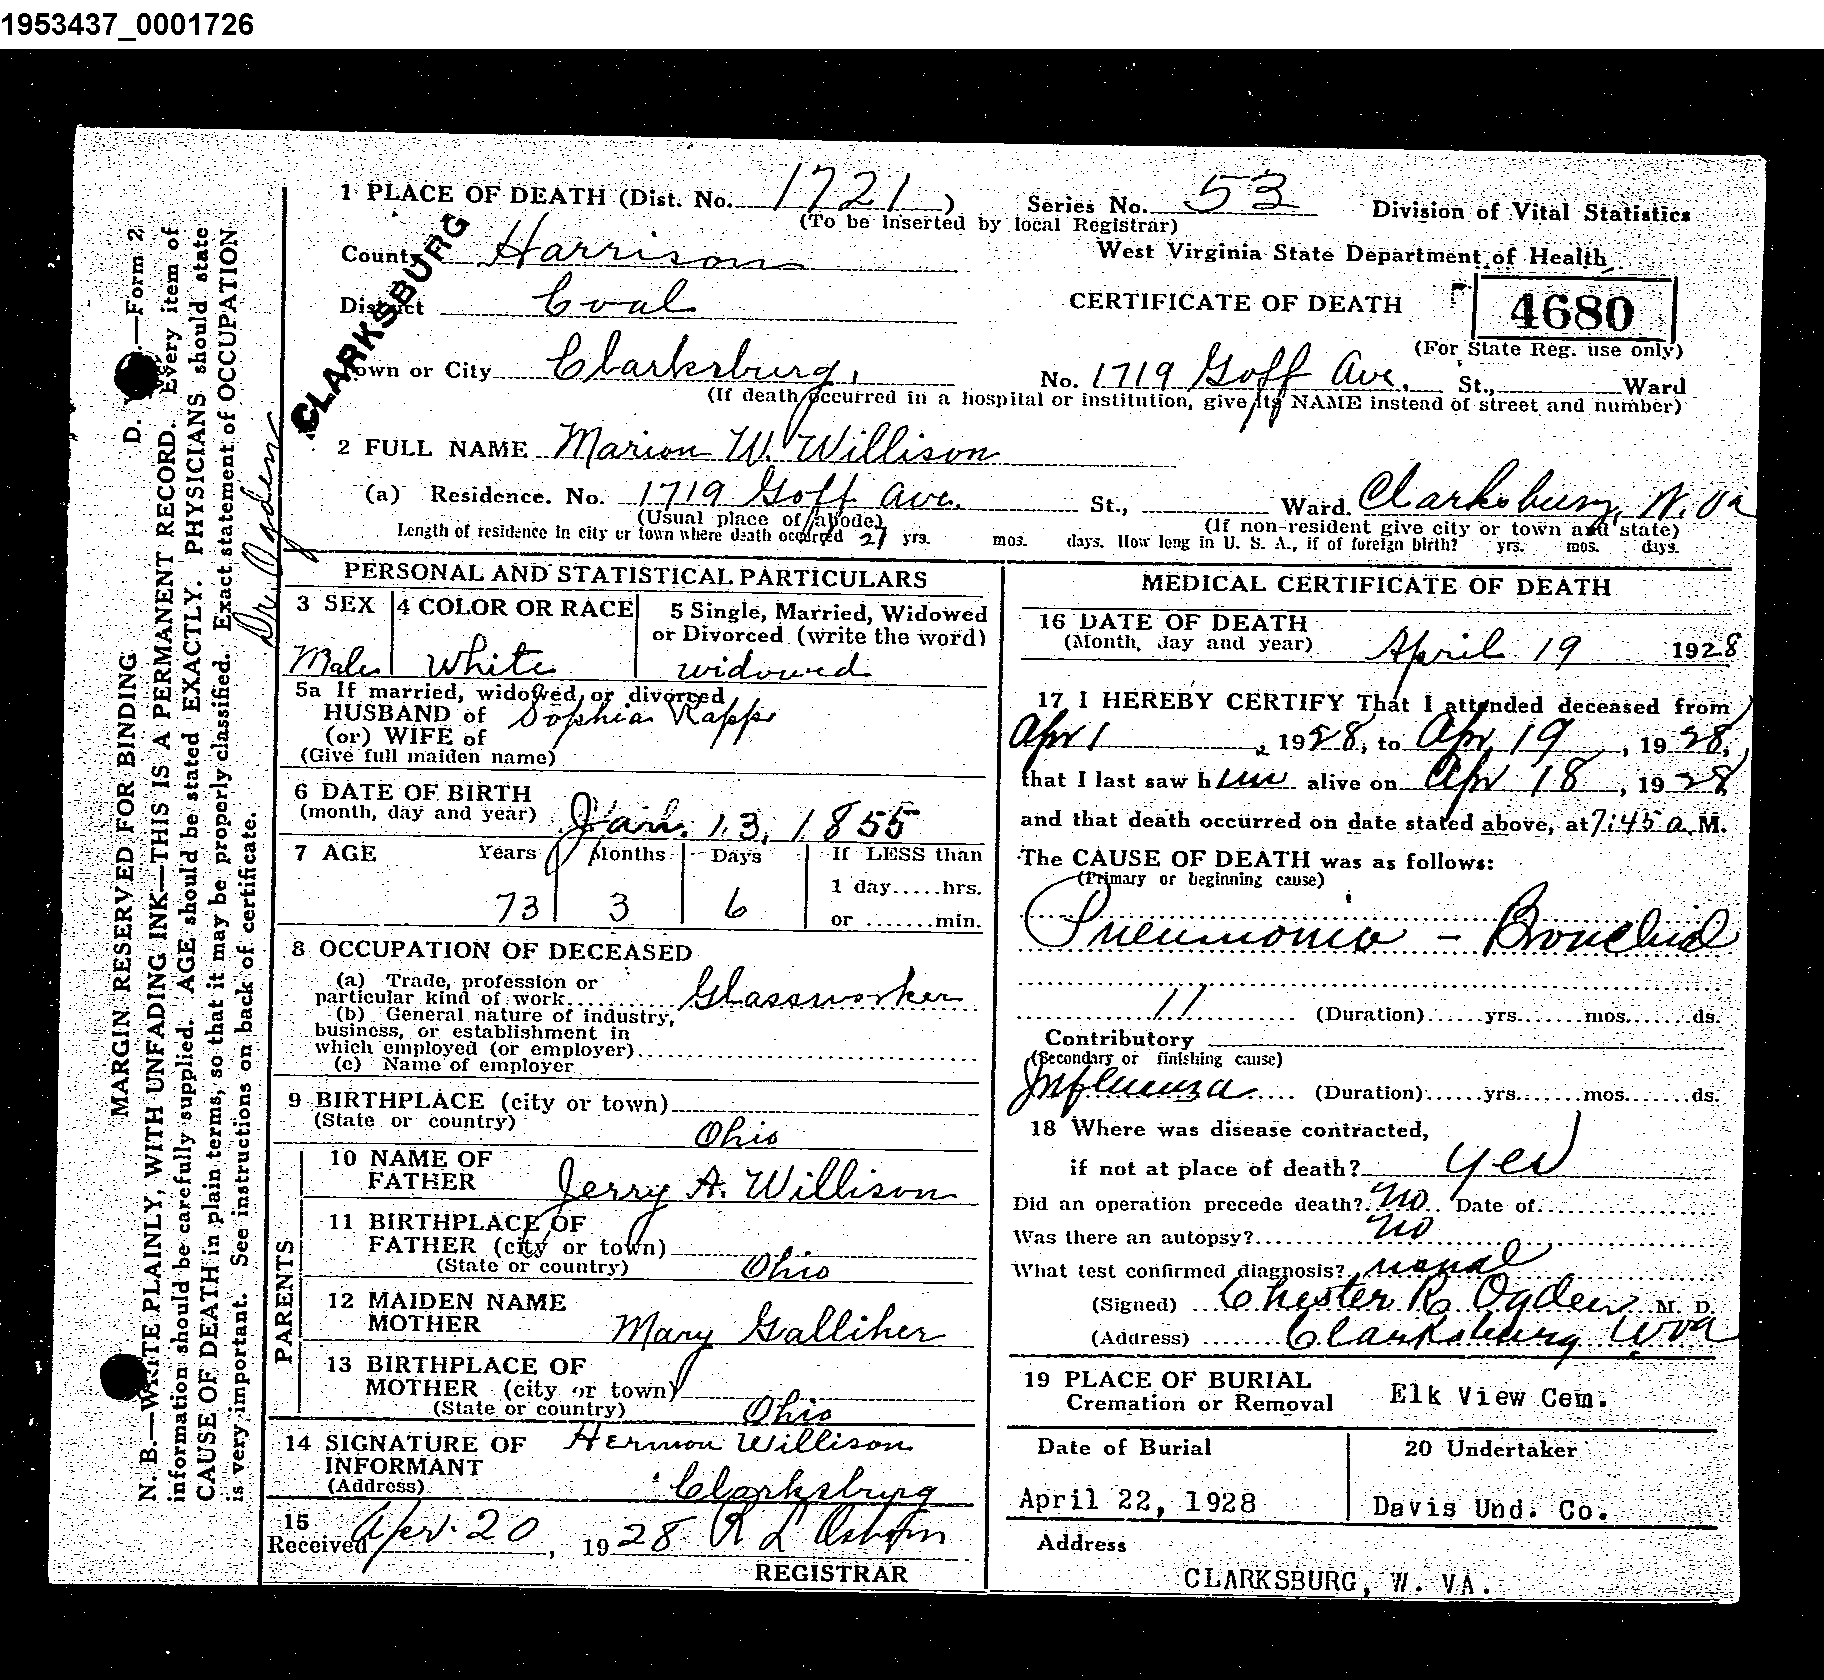 1953437_0001726
1 PLACE OF DEATH (Dist. No. 1721) Series No. 53 Division of Vital Statistics
(To be inserted by local Registrar)
County Harrison West Virginia State Department of Health
CLARKSBURG
District Coal CERTIFICATE OF DEATH 4680
(For State Reg. use only)
Town or City Clarksburg, No. 1719 Goff Ave. St., Ward
(If death occurred in a hospital or institution, give its NAME instead of street and number)
2 FULL NAME Marion W. Willison
(a) Residence. No. 1719 Goff Ave. St., Ward. Clarksburg, W. Va
(Usual place of abode) (If non-resident give city or town and state)
Length of residence in city or town where death occurred 27 yrs. mos. days. How long in U. S. A., if of foreign birth? yrs. mos. days.
PERSONAL AND STATISTICAL PARTICULARS
3 SEX 4 COLOR OR RACE 5 Single, Married, Widowed
or Divorced (write the word)
Male White widowed
5a If married, widowed, or divorced
HUSBAND of Sophia Rapp
(or) WIFE of
(Give full maiden name)
6 DATE OF BIRTH
(month, day and year) Jan. 13, 1855
7 AGE Years Months Days If LESS than
1 day.....hrs.
73 3 6 or .......min.
8 OCCUPATION OF DECEASED
(a) Trade, profession or
particular kind of work Glassworker
(b) General nature of industry,
business, or establishment in
which employed (or employer)
(c) Name of employer
9 BIRTHPLACE (city or town)
(State or country) Ohio
PARENTS
10 NAME OF
FATHER Jerry A. Willison
11 BIRTHPLACE OF
FATHER (city or town)
(State or country) Ohio
12 MAIDEN NAME
MOTHER Mary Galliher
13 BIRTHPLACE OF
MOTHER (city or town)
(State or country) Ohio
14 SIGNATURE OF Hermon Willison
INFORMANT
(Address) Clarksburg
15
Received Apr. 20, 1928 R L Osborn
REGISTRAR
MEDICAL CERTIFICATE OF DEATH
16 DATE OF DEATH
(Month, day and year) April 19 1928
17 I HEREBY CERTIFY That I attended deceased from
Apr 1, 1928, to Apr 19, 1928,
that I last saw him alive on Apr 18, 1928
and that death occurred on date stated above, at 7:45 a. M.
The CAUSE OF DEATH was as follows:
(Primary or beginning cause)
Pneumonia - Bronchial
11 (Duration)......yrs.......mos.......ds.
Contributory
(Secondary or finishing cause)
Influenza (Duration)......yrs.......mos.......ds.
18 Where was disease contracted,
if not at place of death? yes
Did an operation precede death? no Date of
Was there an autopsy? no
What test confirmed diagnosis? usual
(Signed) Chester R Ogden M. D.
(Address) Clarksburg Wva
19 PLACE OF BURIAL Elk View Cem.
Cremation or Removal
Date of Burial 20 Undertaker
April 22, 1928 Davis Und. Co.
Address
CLARKSBURG, W. VA.
Dr. Ogden
MARGIN RESERVED FOR BINDING D. —Form 2
N. B.—WRITE PLAINLY, WITH UNFADING INK—THIS IS A PERMANENT RECORD. Every item of
information should be carefully supplied. AGE should be stated EXACTLY. PHYSICIANS should state
CAUSE OF DEATH in plain terms, so that it may be properly classified. Exact statement of OCCUPATION
is very important. See instructions on back of certificate.